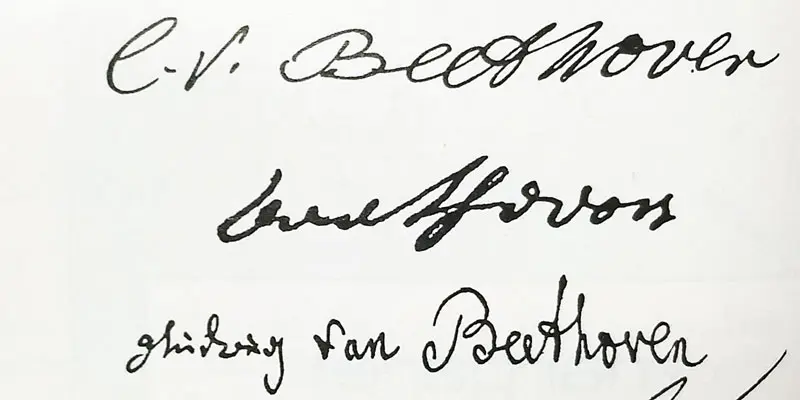 L. v. Beethoven
beethoven
Ludwig van Beethoven